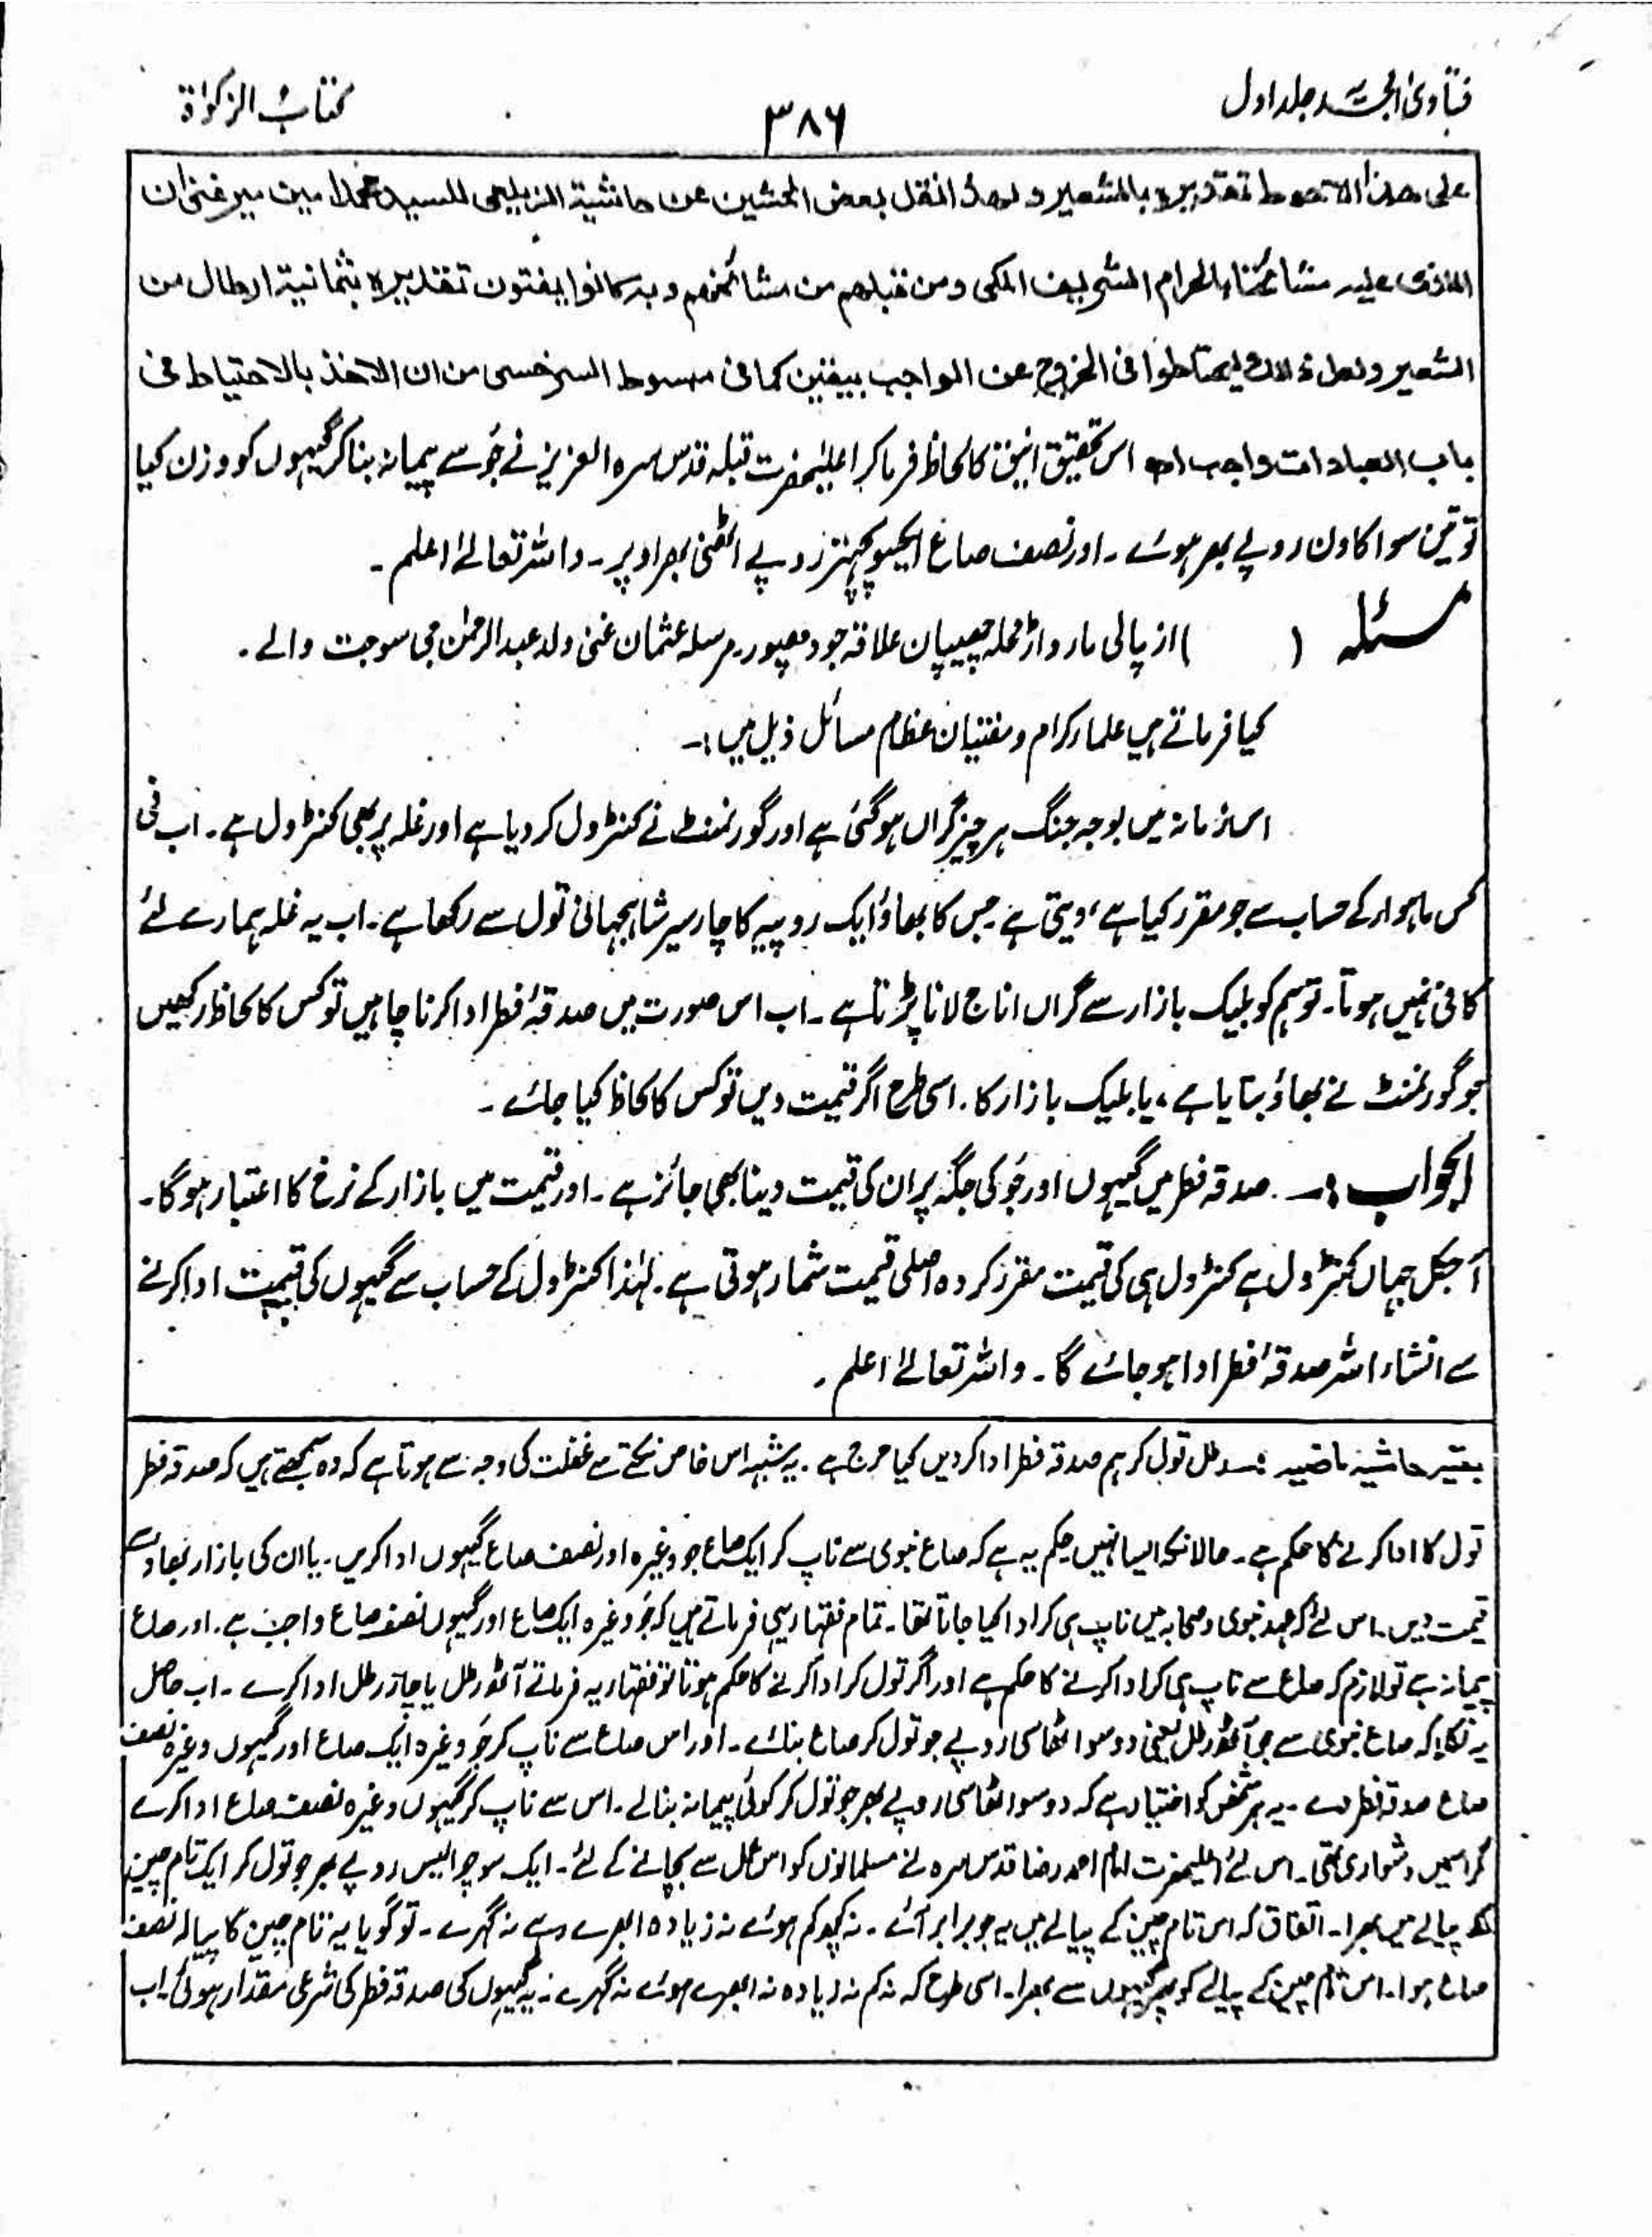 فتاویٰ امجدیہ جلد اول
۳۸۶
کتاب الزکوٰة
علی هذا الاحوط تقدیرہ بالشعیر ولهذا نقل بعض المحشین عن حاشیة الزیلعی للسید محمد امین میر غنی ان
الذی علیه مشائخنا بالحرام الشریف المکی ومن قبلهم من مشائخهم وبه کانوا یفتون تقدیرہ بثمانیة ارطال من
الشعیر ولعل ذلك لیحتاطوا فی الخروج عن الواجب بیقین کما فی مبسوط السرخسی من ان الاخذ بالاحتیاط فی
باب العبادات واجب اھ اس تحقیق انیق کا لحاظ فرما کر اعلیٰحضرت قبلہ قدس سرہ العزیز نے جَو سے پیمانہ بنا کر گیہوں کو وزن کیا
تو تین سو اکاون روپے بھر ہوئے ۔ اور نصف صاع ایکسو پچہتر روپے اٹھنی بھر اوپر ۔ واللہ تعالےٰ اعلم ۔
مسئلہ ( ) از پالی مارواڑ محلہ چھیپان علاقہ جودھپور۔ مرسلہ عثمان غنی ولد عبدالرحمٰن جی سوجت والے ۔
کیا فرماتے ہیں علماء کرام و مفتیان عظام مسائل ذیل میں :۔
اس زمانہ میں بوجہ جنگ ہر چیز گراں ہو گئی ہے اور گورنمنٹ نے کنٹرول کر دیا ہے اور غلہ پر بھی کنٹرول ہے ۔ اب فی
کس ماہوار کے حساب سے جو مقرر کیا ہے ، دیتی ہے ۔ جس کا بھاؤ ایک روپیہ کا چار سیر شاہجہانی تول سے رکھا ہے ۔ اب یہ غلہ ہمارے لئے
کافی نہیں ہوتا ۔ تو ہم کو بلیک بازار سے گراں اناج لانا پڑتا ہے ۔ اب اس صورت میں صدقۂ فطر ادا کرنا چاہیں تو کس کا لحاظ رکھیں
جو گورنمنٹ نے بھاؤ بتایا ہے ، یا بلیک بازار کا ۔ اسی طرح اگر قیمت دیں تو کس کا لحاظ کیا جائے ۔
الجواب :۔ صدقہ فطر میں گیہوں اور جَو کی جگہ پر ان کی قیمت دینا بھی جائز ہے ۔ اور قیمت میں بازار کے نرخ کا اعتبار ہوگا ۔
آجکل جہاں کنٹرول ہے کنٹرول ہی کی قیمت مقرر کردہ اصلی قیمت شمار ہوتی ہے ۔ لہٰذا کنٹرول کے حساب سے گیہوں کی قیمت ادا کرنے
سے انشاء اللہ صدقۂ فطر ادا ہو جائے گا ۔ واللہ تعالےٰ اعلم ۔
بقیہ حاشیہ ماضیہ :۔ رطل تول کر ہم صدقہ فطر ادا کر دیں کیا حرج ہے ۔ یہ شبہہ اس خاص نکتے سے غفلت کی وجہ سے ہوتا ہے کہ وہ سمجھتے ہیں کہ صدقہ فطر
تول کا ادا کرنے کا حکم ہے ۔ حالانکہ ایسا نہیں حکم یہ ہے کہ صاع نبوی سے ناپ کر ایک صاع جو وغیرہ اور نصف صاع گیہوں ادا کریں ۔ یا ان کی بازار بھاؤ سے
قیمت دیں ۔ اس لئے کہ عہد نبوی و صحابہ میں ناپ ہی کر ادا کیا جاتا تھا ۔ تمام فقہاء یہی فرماتے ہیں کہ جَو وغیرہ ایک صاع اور گیہوں نصف صاع واجب ہے ۔ اور صاع
پیمانہ ہے تو لازم کہ صاع سے ناپ ہی کر ادا کرنے کا حکم ہے اور اگر تول کر ادا کرنے کا حکم ہوتا تو فقہاء یہ فرماتے آٹھ رطل یا چار رطل ادا کرے ۔ اب حاصل
یہ نکلا کہ صاع نبوی سے جو آٹھ رطل یعنی دو سو اٹھاسی روپے جو تول کر صاع بنائے ۔ اور اس صاع سے ناپ کر جَو وغیرہ ایک صاع اور گیہوں وغیرہ نصف
صاع صدقہ فطر دے ۔ یہ ہر شخص کو اختیار ہے کہ دو سو اٹھاسی روپے بھر جو تول کر کوئی پیمانہ بنا لے ۔ اس سے ناپ کر گیہوں وغیرہ نصف صاع ادا کرے
مگر اسمیں دشواری تھی ۔ اس لئے اعلیحضرت امام احمد رضا قدس سرہ نے مسلمانوں کو اس عمل سے بچانے کے لئے ۔ ایک سو چوالیس روپے بھر جو تول کر ایک تام چین
کے پیالے میں بھرا ۔ اتفاق کہ اس تام چین کے پیالے میں یہ جو برابر آئے ۔ نہ کچھ کم ہوئے نہ زیادہ ابھرے رہے نہ گہرے ۔ تو گویا یہ تام چین کا پیالہ نصف
صاع ہوا ۔ اس تام چین کے پیالے کو پھر گیہوں سے بھرا ۔ اسی طرح کہ نہ کم نہ زیادہ نہ ابھرے ہوئے نہ گہرے ۔ یہ گیہوں کی صدقہ فطر کی شرعی مقدار ہوئی ۔ اب